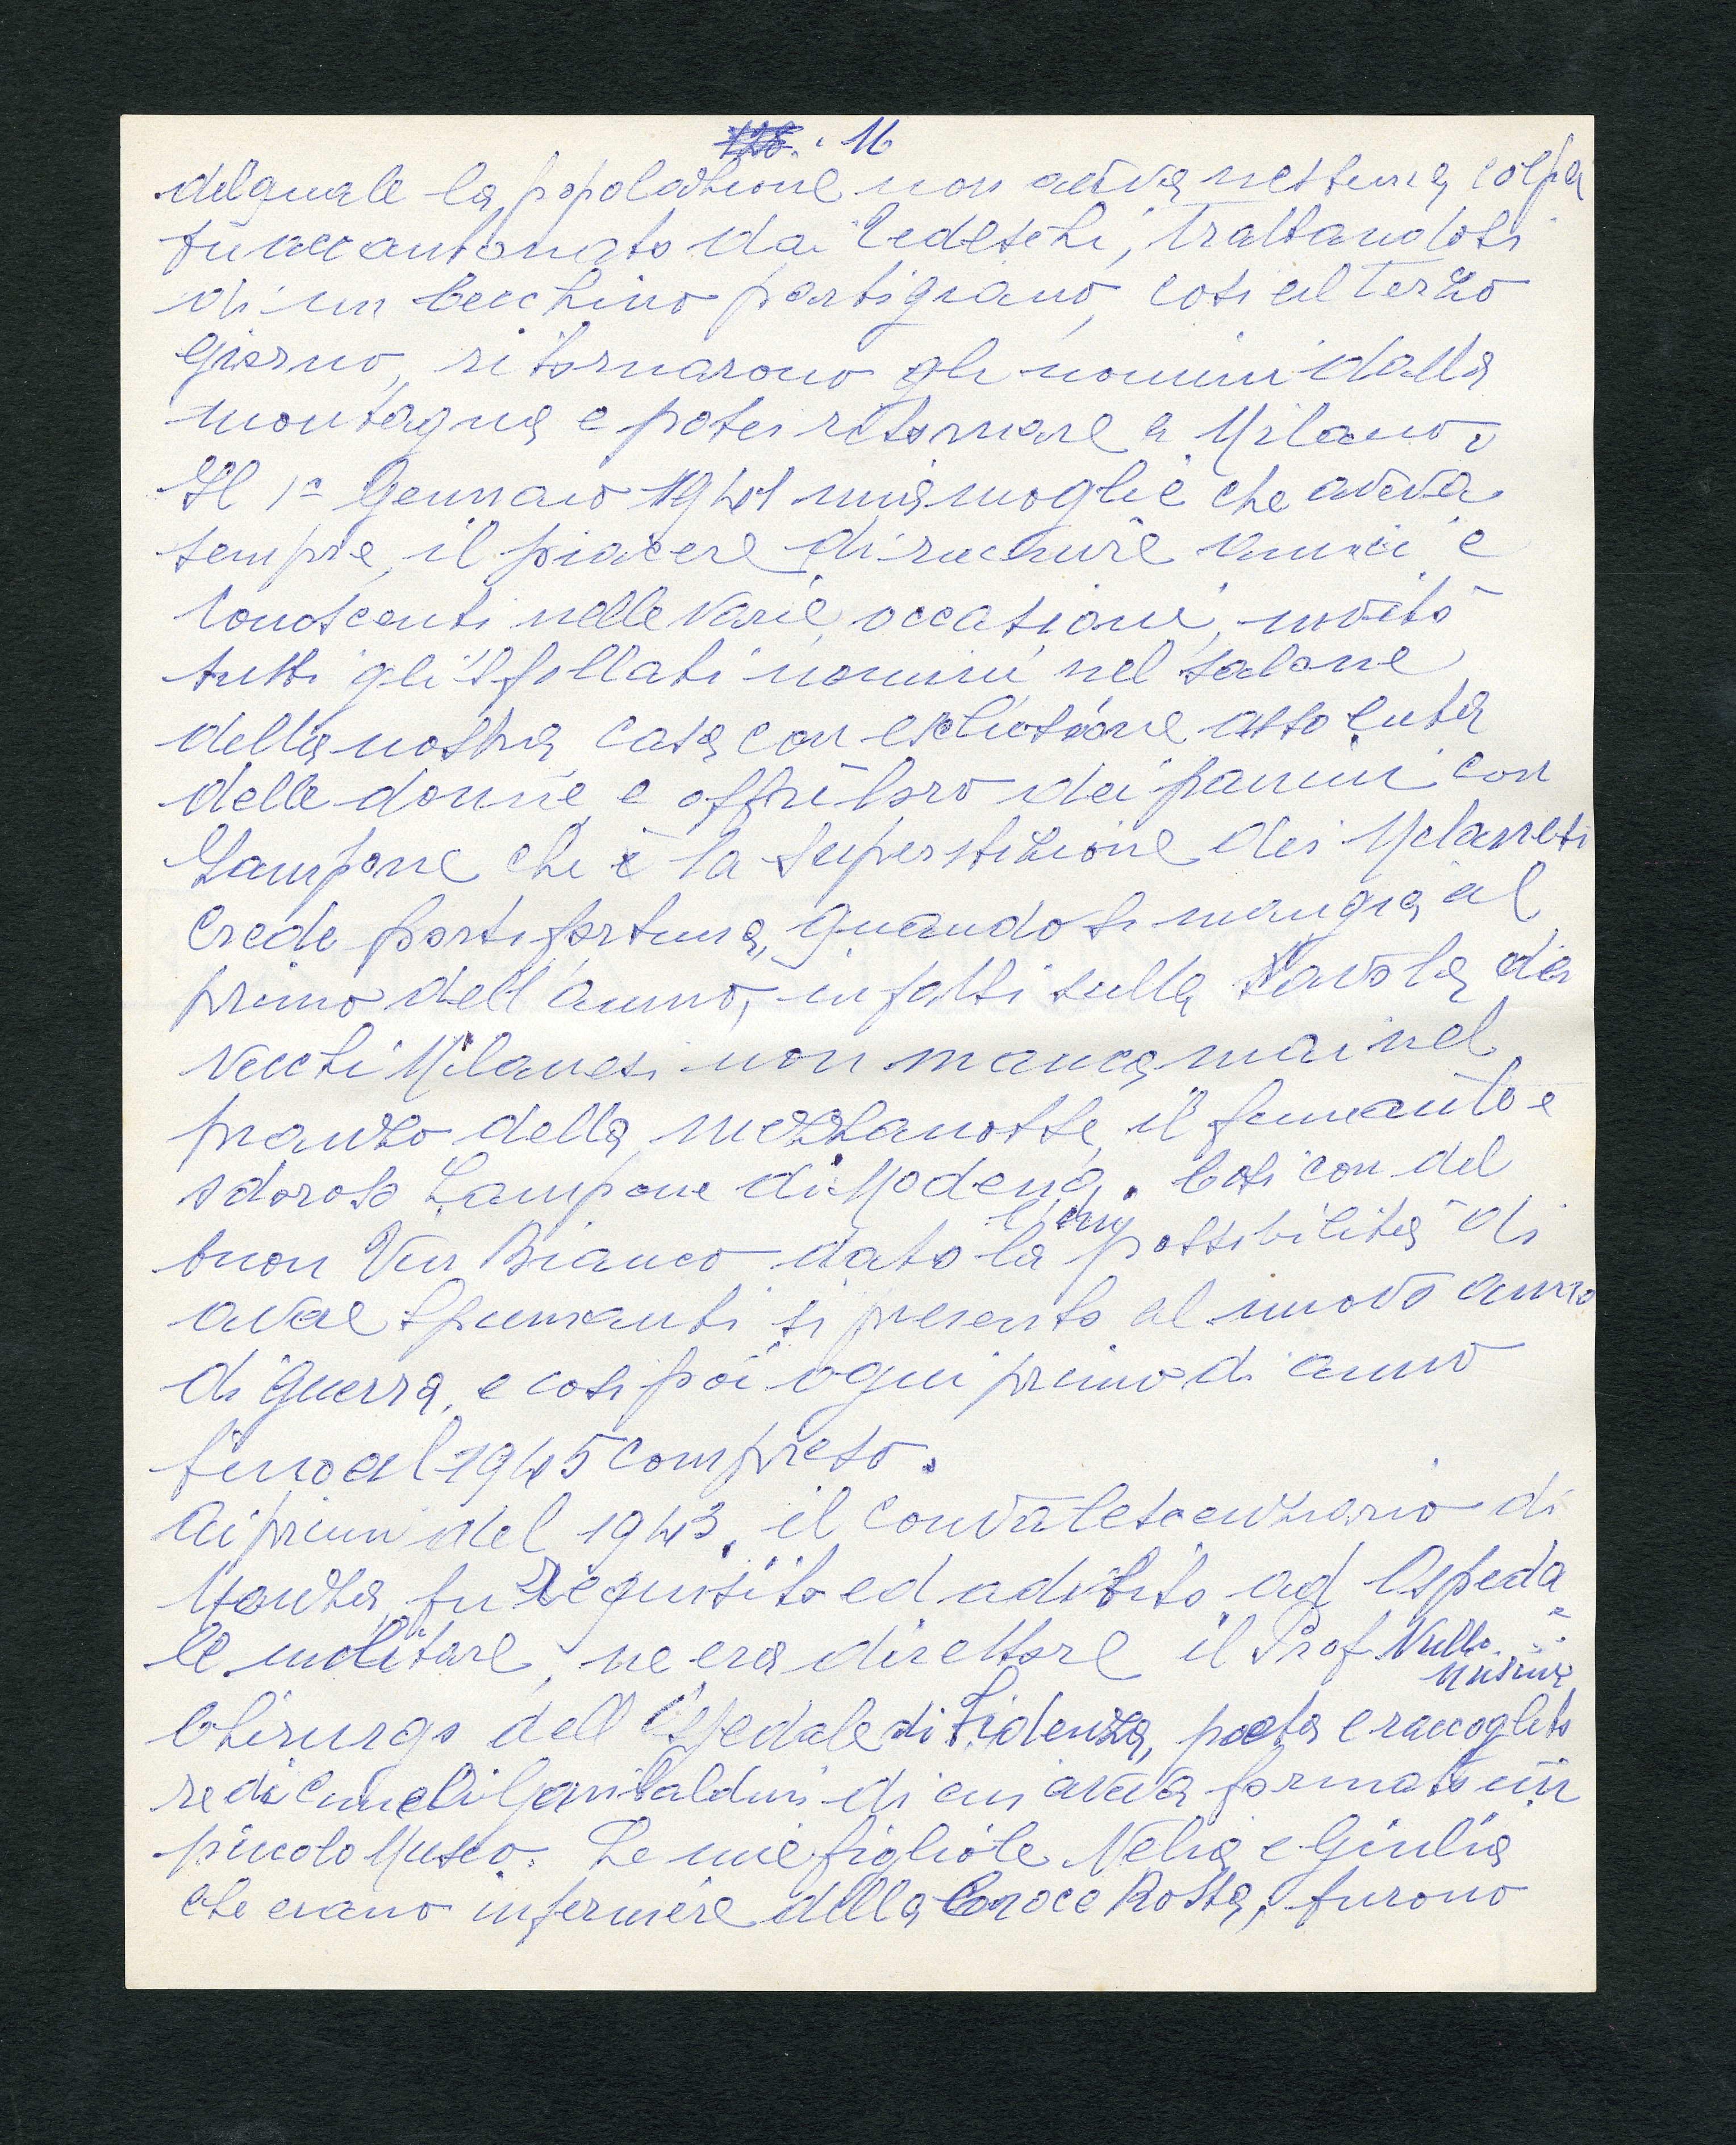 128. 16
del quale la popolazione non aveva nessuna colpa
fu accantonato dai Tedeschi, trattandosi
di un cecchino partigiano, così al terzo
giorno, ritornarono gli uomini dalla
montagna e potei ritornare a Milano.
Il 1° Gennaio 1941 mia moglie che aveva
sempre, il piacere di riunire amici e
Conoscenti nelle varie occasioni, invitò
tutti gli sfollati uomini nel salone
della nostra casa con esclusione assoluta
delle donne e offrì loro dei panini con
Zampone che è la superstizione dei Milanesi
crede porti fortuna, quando si mangia al
primo dell'anno, infatti sulla tavola dei
Vecchi Milanesi non manca mai nel
pranzo della mezzanotte, il fumante e
odoroso Zampone di Modena. Così con del
buon Vin Bianco dato la possibilità di
avere Spumanti si presentò al nuovo anno
di guerra, e così poi ogni primo di anno
fino al 1945 compreso.
Ai primi del 1943, il Convalescenziario di
Monza, fu requisito ed adibito ad Ospeda=
le militare, ne era direttore il Prof. Nullo
Musini
Chirurgo dell'Ospedale di Fidenza, poeta e raccoglito
re di Cimeli Garibaldini di cui aveva formato un
piccolo Museo. Le mie figliole Nelia e Giulia
che erano infermiere della Croce Rossa, furono